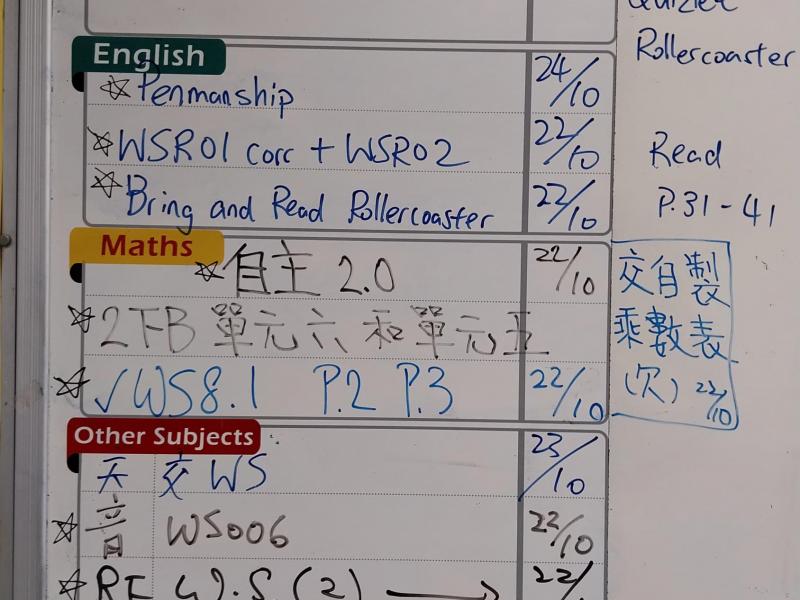 Quizlet
Rollercoaster
English
☆Penmanship 24/10
☆WSR01 corr + WSR02 22/10
☆Bring and Read Rollercoaster 22/10
Read
P.31-41
Maths
☆自主 2.0 22/10
☆2下B 單元六 和單元五
☆✓WS8.1 P.2 P.3 22/10
交自製
乘數表
(欠) 22/10
Other Subjects
天 交 WS 23/10
☆音 WS006 22/10
☆RE W.S (2) → 22/